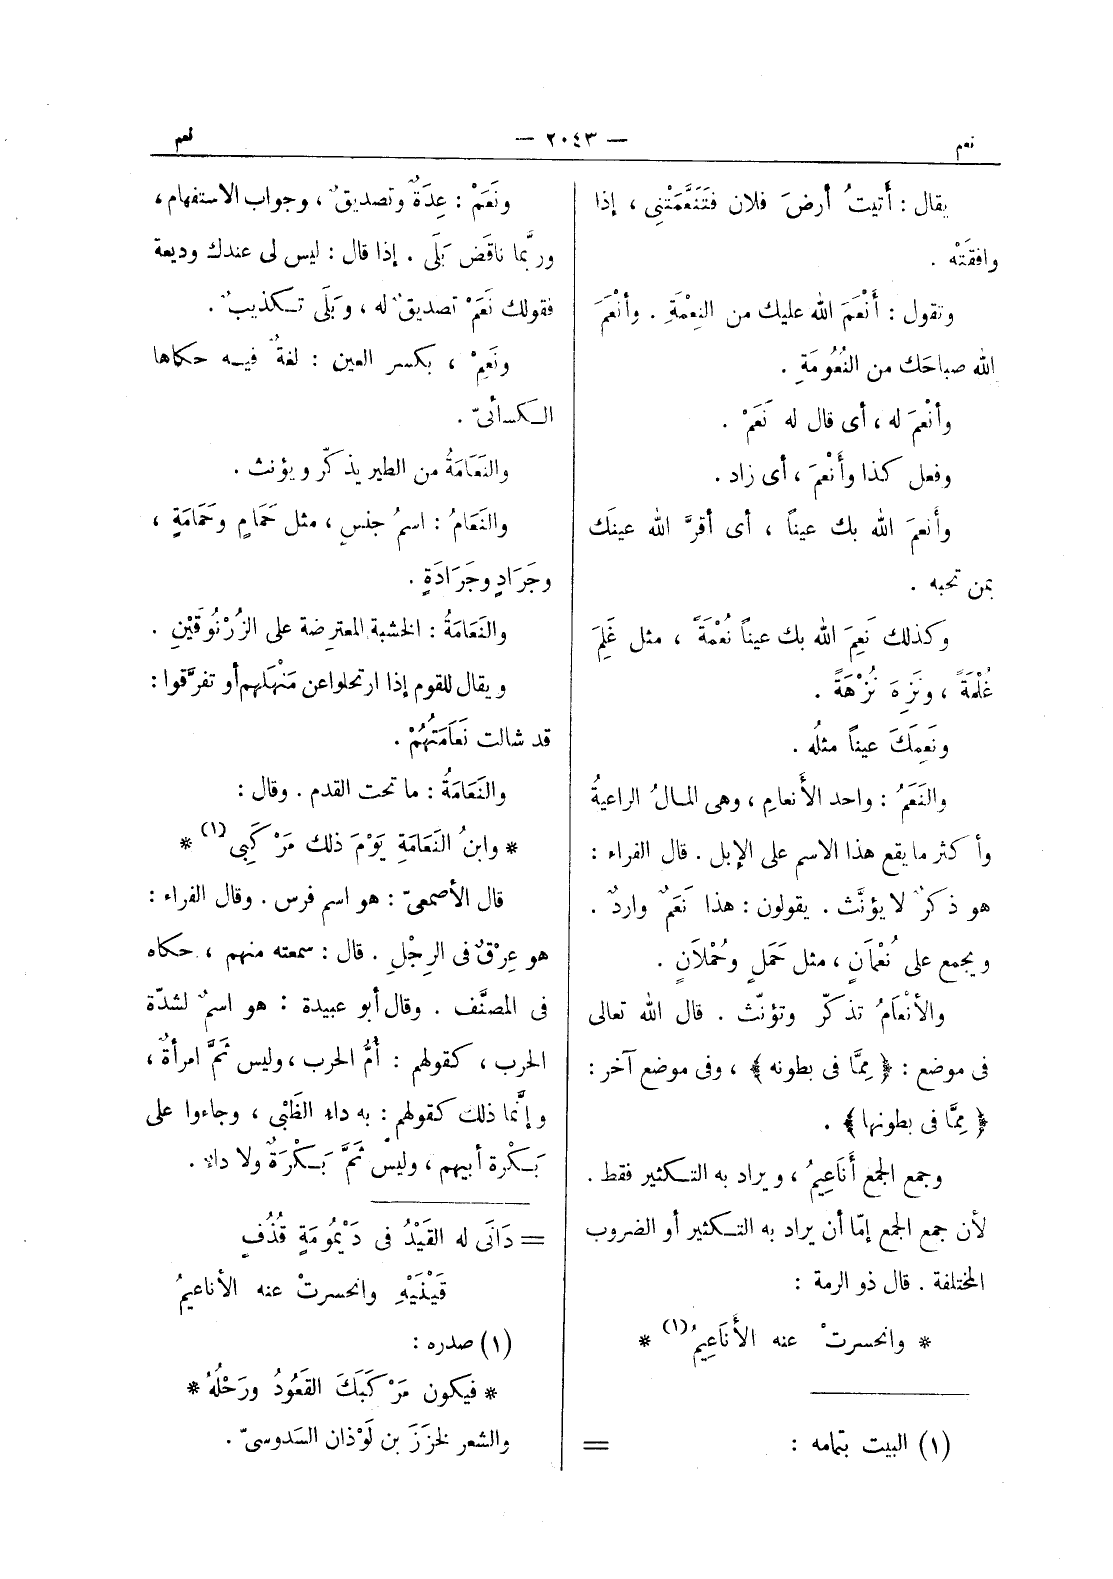 نعم — ٢٠٤٣ — نعم
يقال : أتيتُ أرضَ فلان فَتَنَعَّمَتْنِى ، إذا
وافقتْه .
وتقول : أَنْعَمَ الله عليك من النِعْمَةِ . وأَنْعَمَ
الله صباحَك من النُعُومَةِ .
وأَنْعَمَ له ، أى قال له نَعَمْ .
وفعل كذا وأَنْعَمَ ، أى زاد .
وأَنعمَ الله بك عيناً ، أى أقرَّ الله عينَك
بمن تحبه .
وكذلك نَعِمَ الله بك عيناً نُعْمَةً ، مثل غَلِمَ
غُلْمَةً ، ونَزِهَ نُزْهَةً .
ونَعِمَكَ عيناً مثلُه .
والنَعَمُ : واحد الأَنعامِ ، وهى المالُ الراعيةُ
وأكثر ما يقع هذا الاسم على الإبل . قال الفراء :
هو ذكرٌ لا يؤنَّث . يقولون : هذا نَعَمٌ واردٌ .
ويجمع على نُعْمَانٍ ، مثل حَمَلٍ وحُمْلَانٍ .
والأنْعَامُ تذكّر وتؤنّث . قال الله تعالى
فى موضع : ﴿ مِمَّا فى بطونه ﴾ ، وفى موضع آخر :
﴿ مِمَّا فى بطونها ﴾ .
وجمع الجمع أَنَاعِيمُ ، ويراد به التكثير فقط .
لأن جمع الجمع إمّا أن يراد به التكثير أو الضروب
المختلفة . قال ذو الرمة :
* وانحسرتْ عنه الأَنَاعِيمُ (١) *
(١) البيت بتمامه : =
ونَعَمْ : عِدَةٌ وتصديقٌ ، وجواب الاستفهام ،
وربَّما ناقَض بَلَى . إذا قال : ليس لى عندك وديعة
فقولك نَعَمْ تصديقٌ له ، وبَلَى تكذيبٌ .
ونَعِمْ ، بكسر العين : لغةٌ فيه حكاها
الكسائىّ .
والنَعَامَةُ من الطير يذكّر ويؤنث .
والنَعَامُ : اسمُ جنسٍ ، مثل حَمَامٍ وحَمَامَةٍ ،
وجَرَادٍ وجَرَادَةٍ .
والنَعَامَةُ : الخشبة المعترضة على الزُرْنُوقَيْنِ .
ويقال للقوم إذا ارتحلوا عن مَنْهَلِهم أو تفرَّقوا :
قد شالت نَعَامَتُهُمْ .
والنَعَامَةُ : ما تحت القدم . وقال :
* وابنُ النَعَامَةِ يَوْمَ ذلك مَرْكَبِى (١) *
قال الأصمعىّ : هو اسم فرس . وقال الفراء :
هو عِرْقٌ فى الرِجْلِ . قال : سمعته منهم ، حكاه
فى المصنَّف . وقال أبو عبيدة : هو اسمٌ لشدّة
الحرب ، كقولهم : أُمُّ الحرب ، وليس ثَمَّ امرأةٌ ،
وإنَّما ذلك كقولهم : به داء الظَبْى ، وجاءوا على
بَكْرة أبيهم ، وليس ثَمَّ بَكْرَةٌ ولا داء .
= دَانَى له القَيْدُ فى دَيْمُومَةٍ قُذُفٍ
قَيْنَيْهِ وانحسرتْ عنه الأناعيمُ
(١) صدره :
* فيكون مَرْكَبَكَ القَعُودُ ورَحْلُهُ *
والشعر لخُزَزَ بن لَوْذان السَدوسىّ .